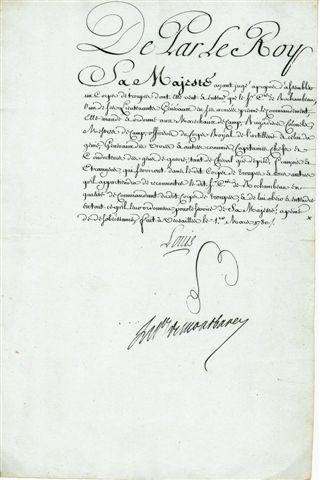 De Par Le Roy
Sa Majesté ayant jugé apropos d'assembler
un Corps de troupes dont Elle veut que le S. Cte. de Rochambeau,
l'un de ses Lieutenants Généraux de ses armées prenne le commandement,
Elle mande & ordonne aux Marechaux de Camp, Brigadiers, Colonels,
Mestres de Camp, officiers du Corps Royal de l'artillerie & celui du
génie, des Vivres & autres comme Capitaines, chefs &
Conducteurs des gens de guerre, tant de Cheval que de pied, François &
Etrangers, qui serviront dans ledit Corps de Troupes & tous autres
qu'il appartiendra de reconnoitre le dit S. Cte. de Rochambeau en
qualité de Commandant dudit Corps de troupes & de lui obéir & entendre
en tout ce qu'il leur ordonnera pour le service de Sa Majesté, apeine
de desobeissance, fait à Versailles le 1er Mars 1780.
Louis
le Pce. de Montbarey